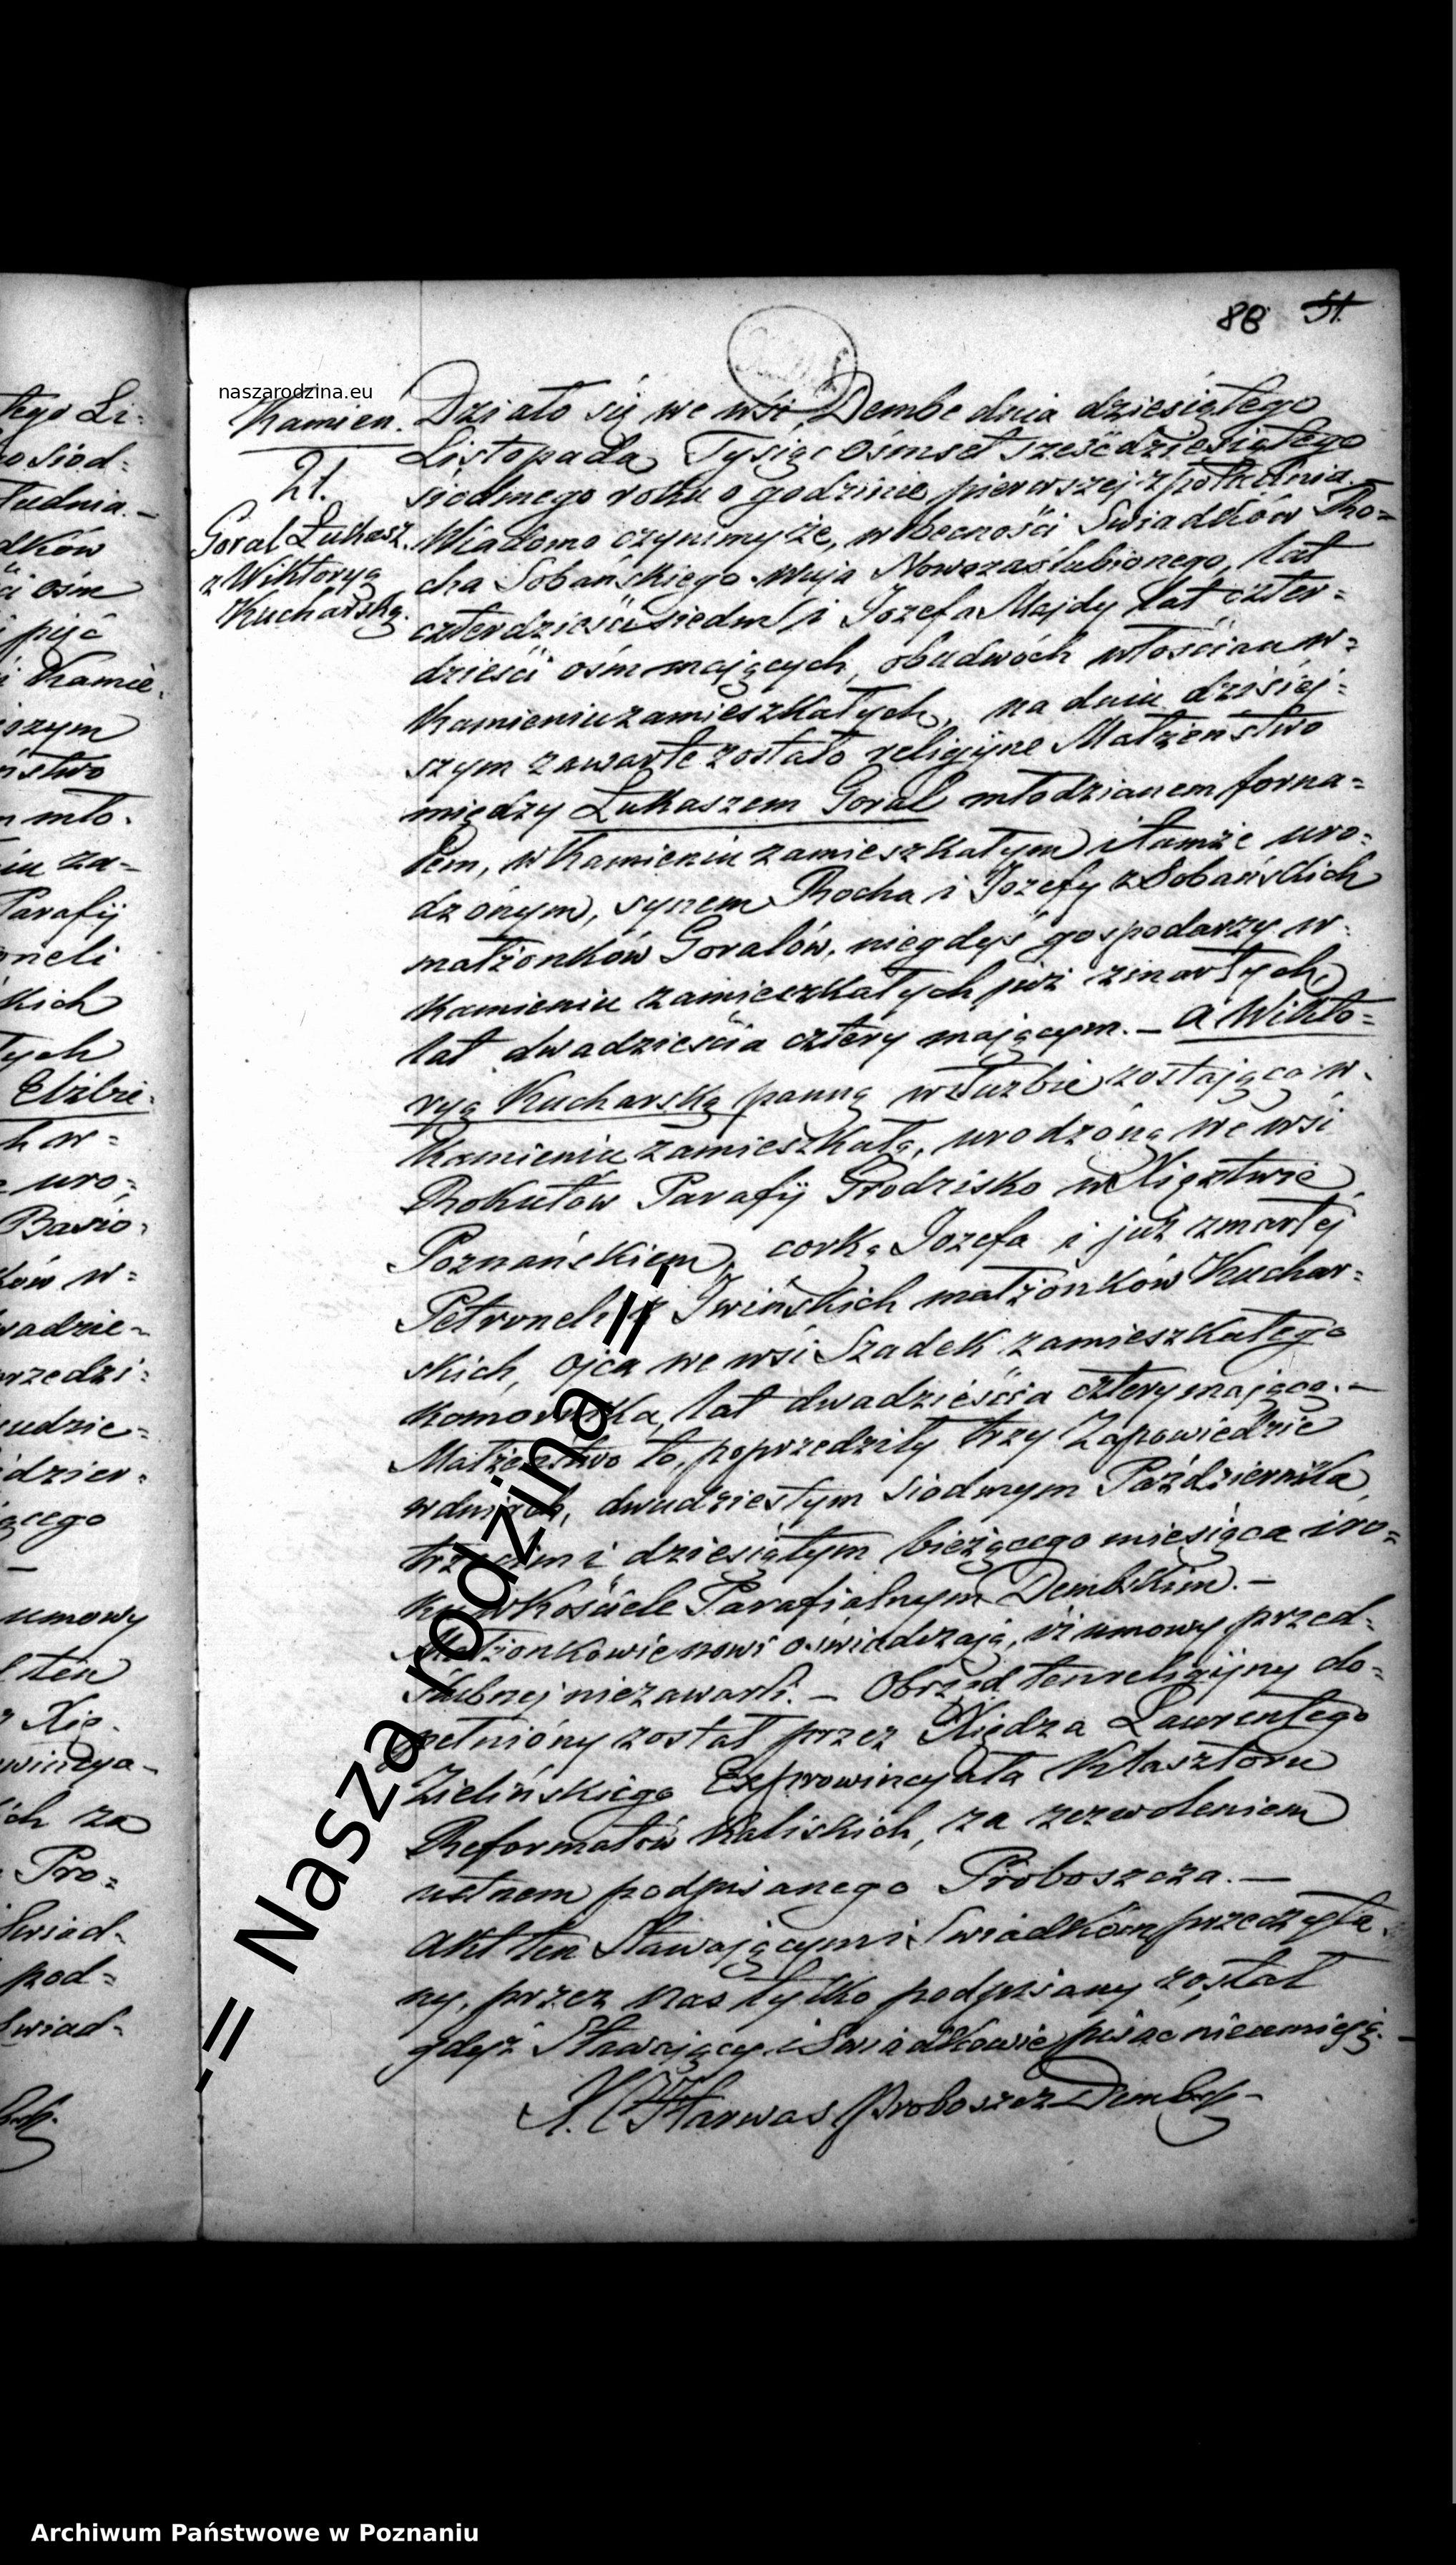 88 51.
naszarodzina.eu
Kamien.
21.
Goral Łukasz
z Wiktoryą
Kucharską.
Działo się we wsi Dembe dnia dziesiątego
Listopada Tysiąc Ośmset sześćdziesiątego
siodmego roku o godzinie pierwszej z południa.
Wiadomo czynimy że, w obecności Swiadków Ro=
cha Sobańskiego wuja Nowozaślubionego, lat
czterdzieści siedm i Jozefa Majdy lat czter=
dzieści ośm mających, obudwóch włościan w=
Kamieniu zamieszkałych, na dniu dzisiej=
szym zawarte zostało religijne Małżeństwo
między Łukaszem Goral młodzianem forna=
lem, w Kamieniu zamieszkałym i tamże uro=
dzónym, synem Rocha i Jozefy z Sobańskich
małżonków Goralów, niegdyś gospodarzy w=
Kamieniu zamieszkałych już zmarłych,
lat dwadzieścia cztery mającym. — a Wikto=
ryą Kucharską panną w służbie zostającą w=
Kamieniu zamieszkałą, urodzóną we wsi
Rokutów Parafij Grodzisko w Xięztwie
Poznańskiem, corką Jozefa i już zmarłej
Petroneli z Iwińskich małżonków Kuchar=
skich, ojca we wsi Szadek zamieszkałego
komornika, lat dwadzieścia cztery mającą. —
Małżeństwo to, poprzedziły trzy Zapowiedzie
w dniach, dwudziestym siodmym Października,
trzecim i dziesiątym bieżącego miesiąca i ro=
ku w Kościele Parafialnym Dembskim. —
Małżonkowie nowi oświadczają, iż umowy przed=
ślubnej niezawarli. — Obrząd ten religijny do=
pełnióny został przez Xiędza Laurentego
Zielińskiego Exprowincyała Klasztoru
Reformatów Kaliskich, za zezwoleniem
ustnem podpisanego Proboszcza. —
Akt ten Stawającym i Swiadkóm przeczyta=
ny, przez nas tylko podpisany został
gdyż Stawający i Swiadkowie pisac nieumieją. —
X. Harwas Proboszcz Dembsk
-= Nasza rodzina =-
Archiwum Państwowe w Poznaniu